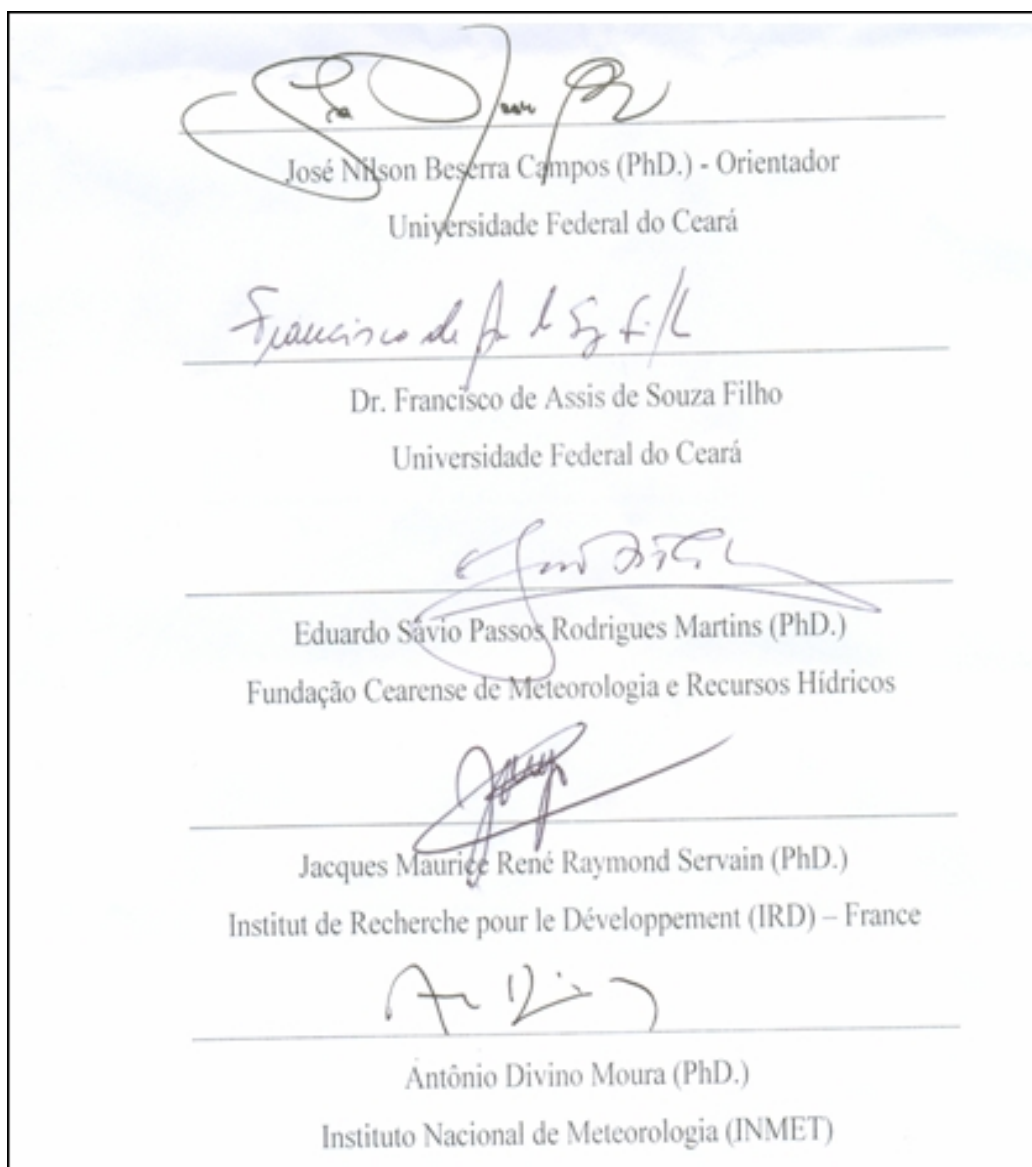 José Nilson Beserra Campos (PhD.) - Orientador
Universidade Federal do Ceará
Francisco de
Dr. Francisco de Assis de Souza Filho
Universidade Federal do Ceará
Eduardo Sávio Passos Rodrigues Martins (PhD.)
Fundação Cearense de Meteorologia e Recursos Hídricos
Jacques Maurice René Raymond Servain (PhD.)
Institut de Recherche pour le Développement (IRD) – France
Antônio Divino Moura (PhD.)
Instituto Nacional de Meteorologia (INMET)